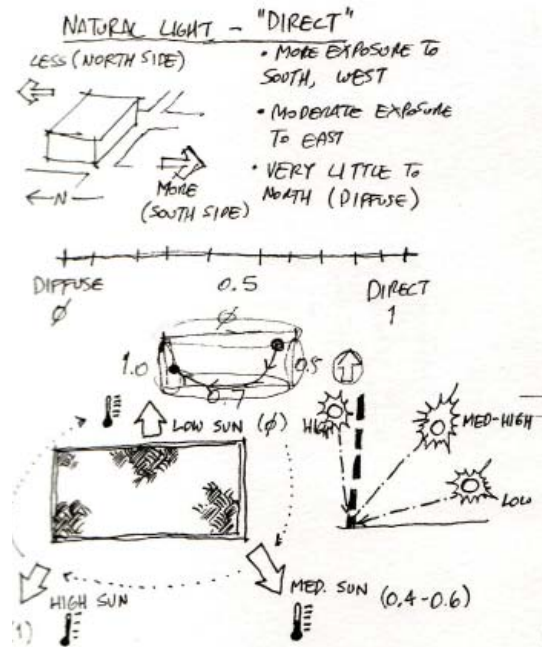 NATURAL LIGHT - "DIRECT"
LESS (NORTH SIDE)
N
MORE
(SOUTH SIDE)
• MORE EXPOSURE TO
SOUTH, WEST
• MODERATE EXPOSURE
TO EAST
• VERY LITTLE TO
NORTH (DIFFUSE)
DIFFUSE
Ø
0.5
DIRECT
1
Ø
1.0
0.5
0.7
LOW SUN (Ø)
HIGH
MED-HIGH
LOW
HIGH SUN
1)
MED. SUN (0.4-0.6)